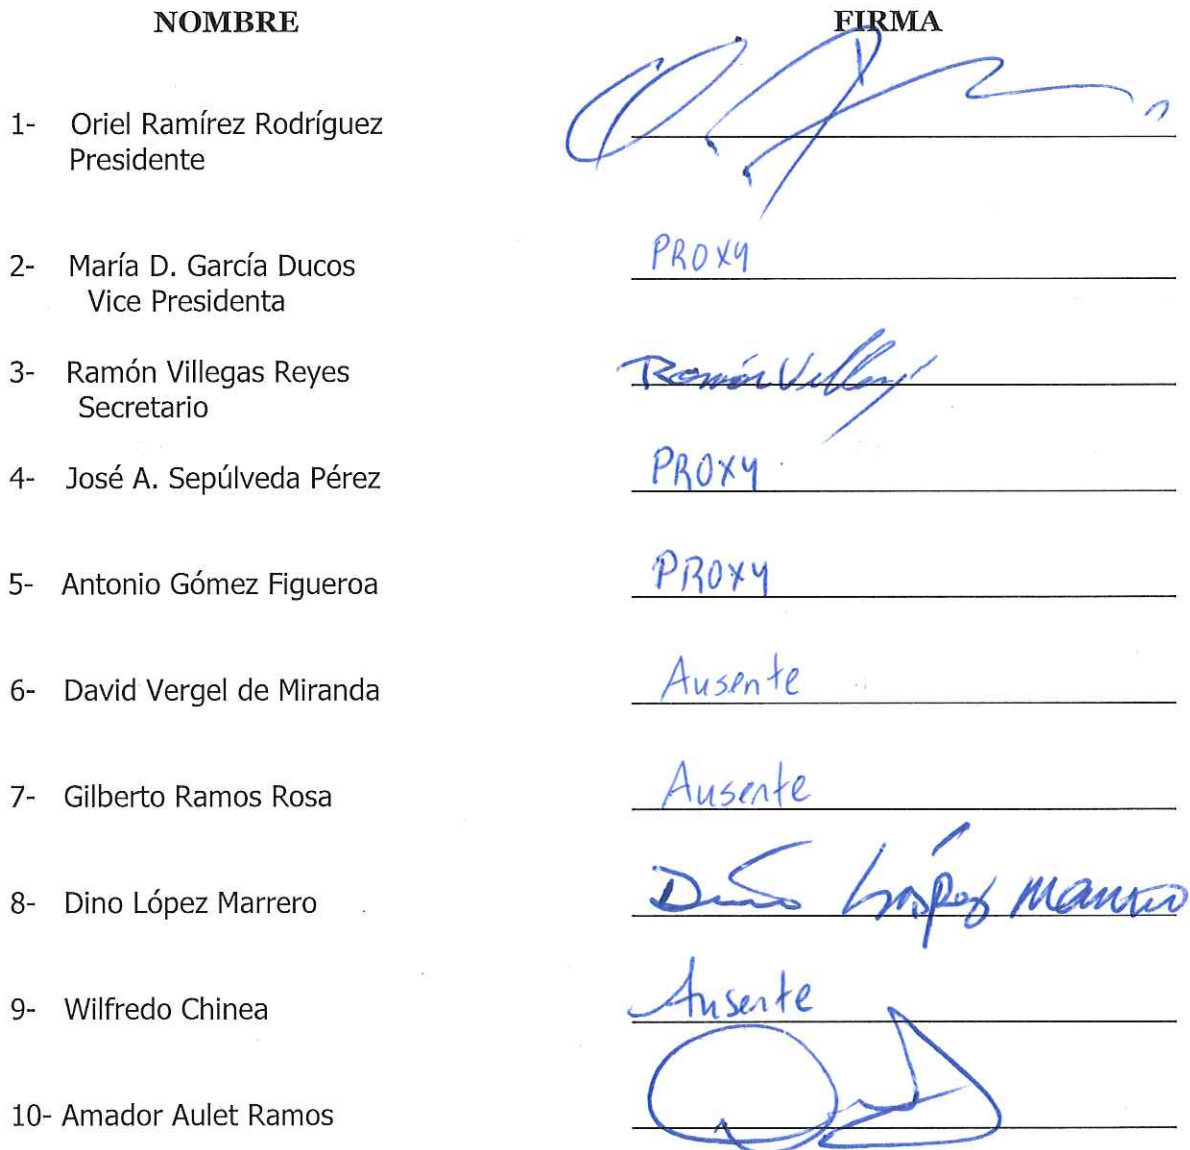 NOMBRE FIRMA
1- Oriel Ramírez Rodríguez
Presidente
2- María D. García Ducos PROXY
Vice Presidenta
3- Ramón Villegas Reyes Ramón Villegas
Secretario
4- José A. Sepúlveda Pérez PROXY
5- Antonio Gómez Figueroa PROXY
6- David Vergel de Miranda Ausente
7- Gilberto Ramos Rosa Ausente
8- Dino López Marrero Dino López Marrero
9- Wilfredo Chinea Ausente
10- Amador Aulet Ramos